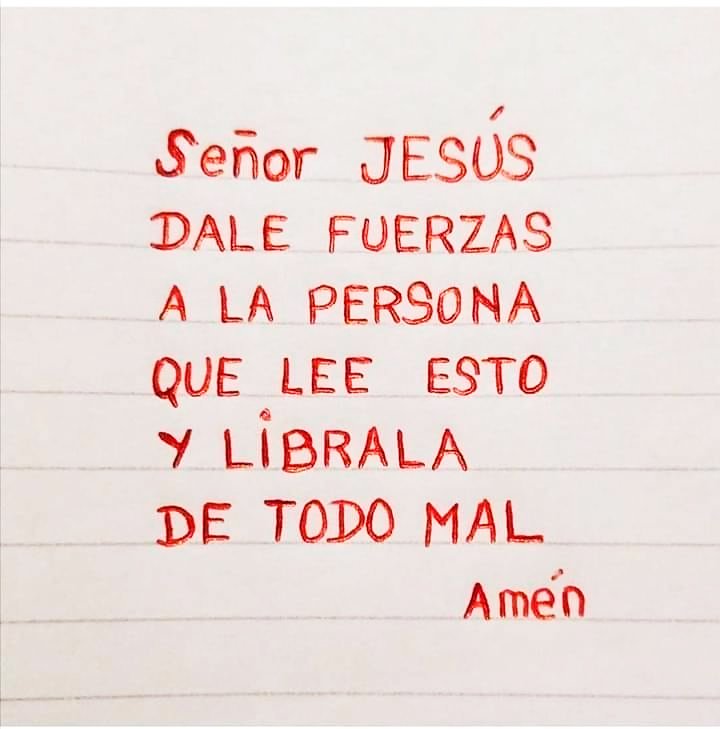 Señor JESÚS
DALE FUERZAS
A LA PERSONA
QUE LEE ESTO
Y LíBRALA
DE TODO MAL
Amén